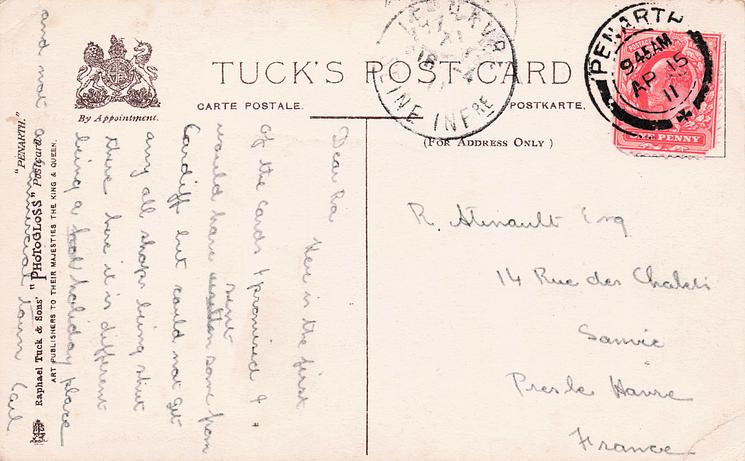 TUCK'S POST CARD
By Appointment.
CARTE POSTALE.
POSTKARTE.
(FOR ADDRESS ONLY)
PENARTH
9.45AM
AP 15
11
PENNY
INE INFRE
R. Esq
14 Rue des
Sanvic
Pres le Havre
France
Dear
Here is the first
of the cards I promised &
would have
sent
some from
Cardiff but could not get
any all shops being shut
there here it is different
being a holiday place
and not a town
"PENARTH."
Raphael Tuck & Sons' "PHOTOGLOSS" Postcard
ART PUBLISHERS TO THEIR MAJESTIES THE KING & QUEEN.